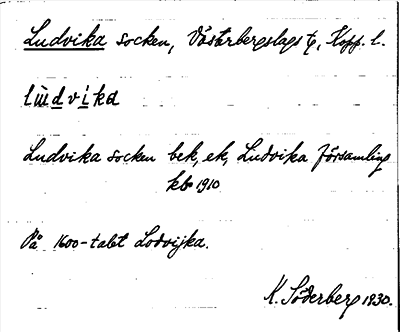 Ludvika socken, Västerbergslags tg, Kopp. l.
lùdvika
Ludvika socken bek, ek, Ludvika församling
kb 1910
På 1600-talet Lodvijka.
K. Söderberg 1930.